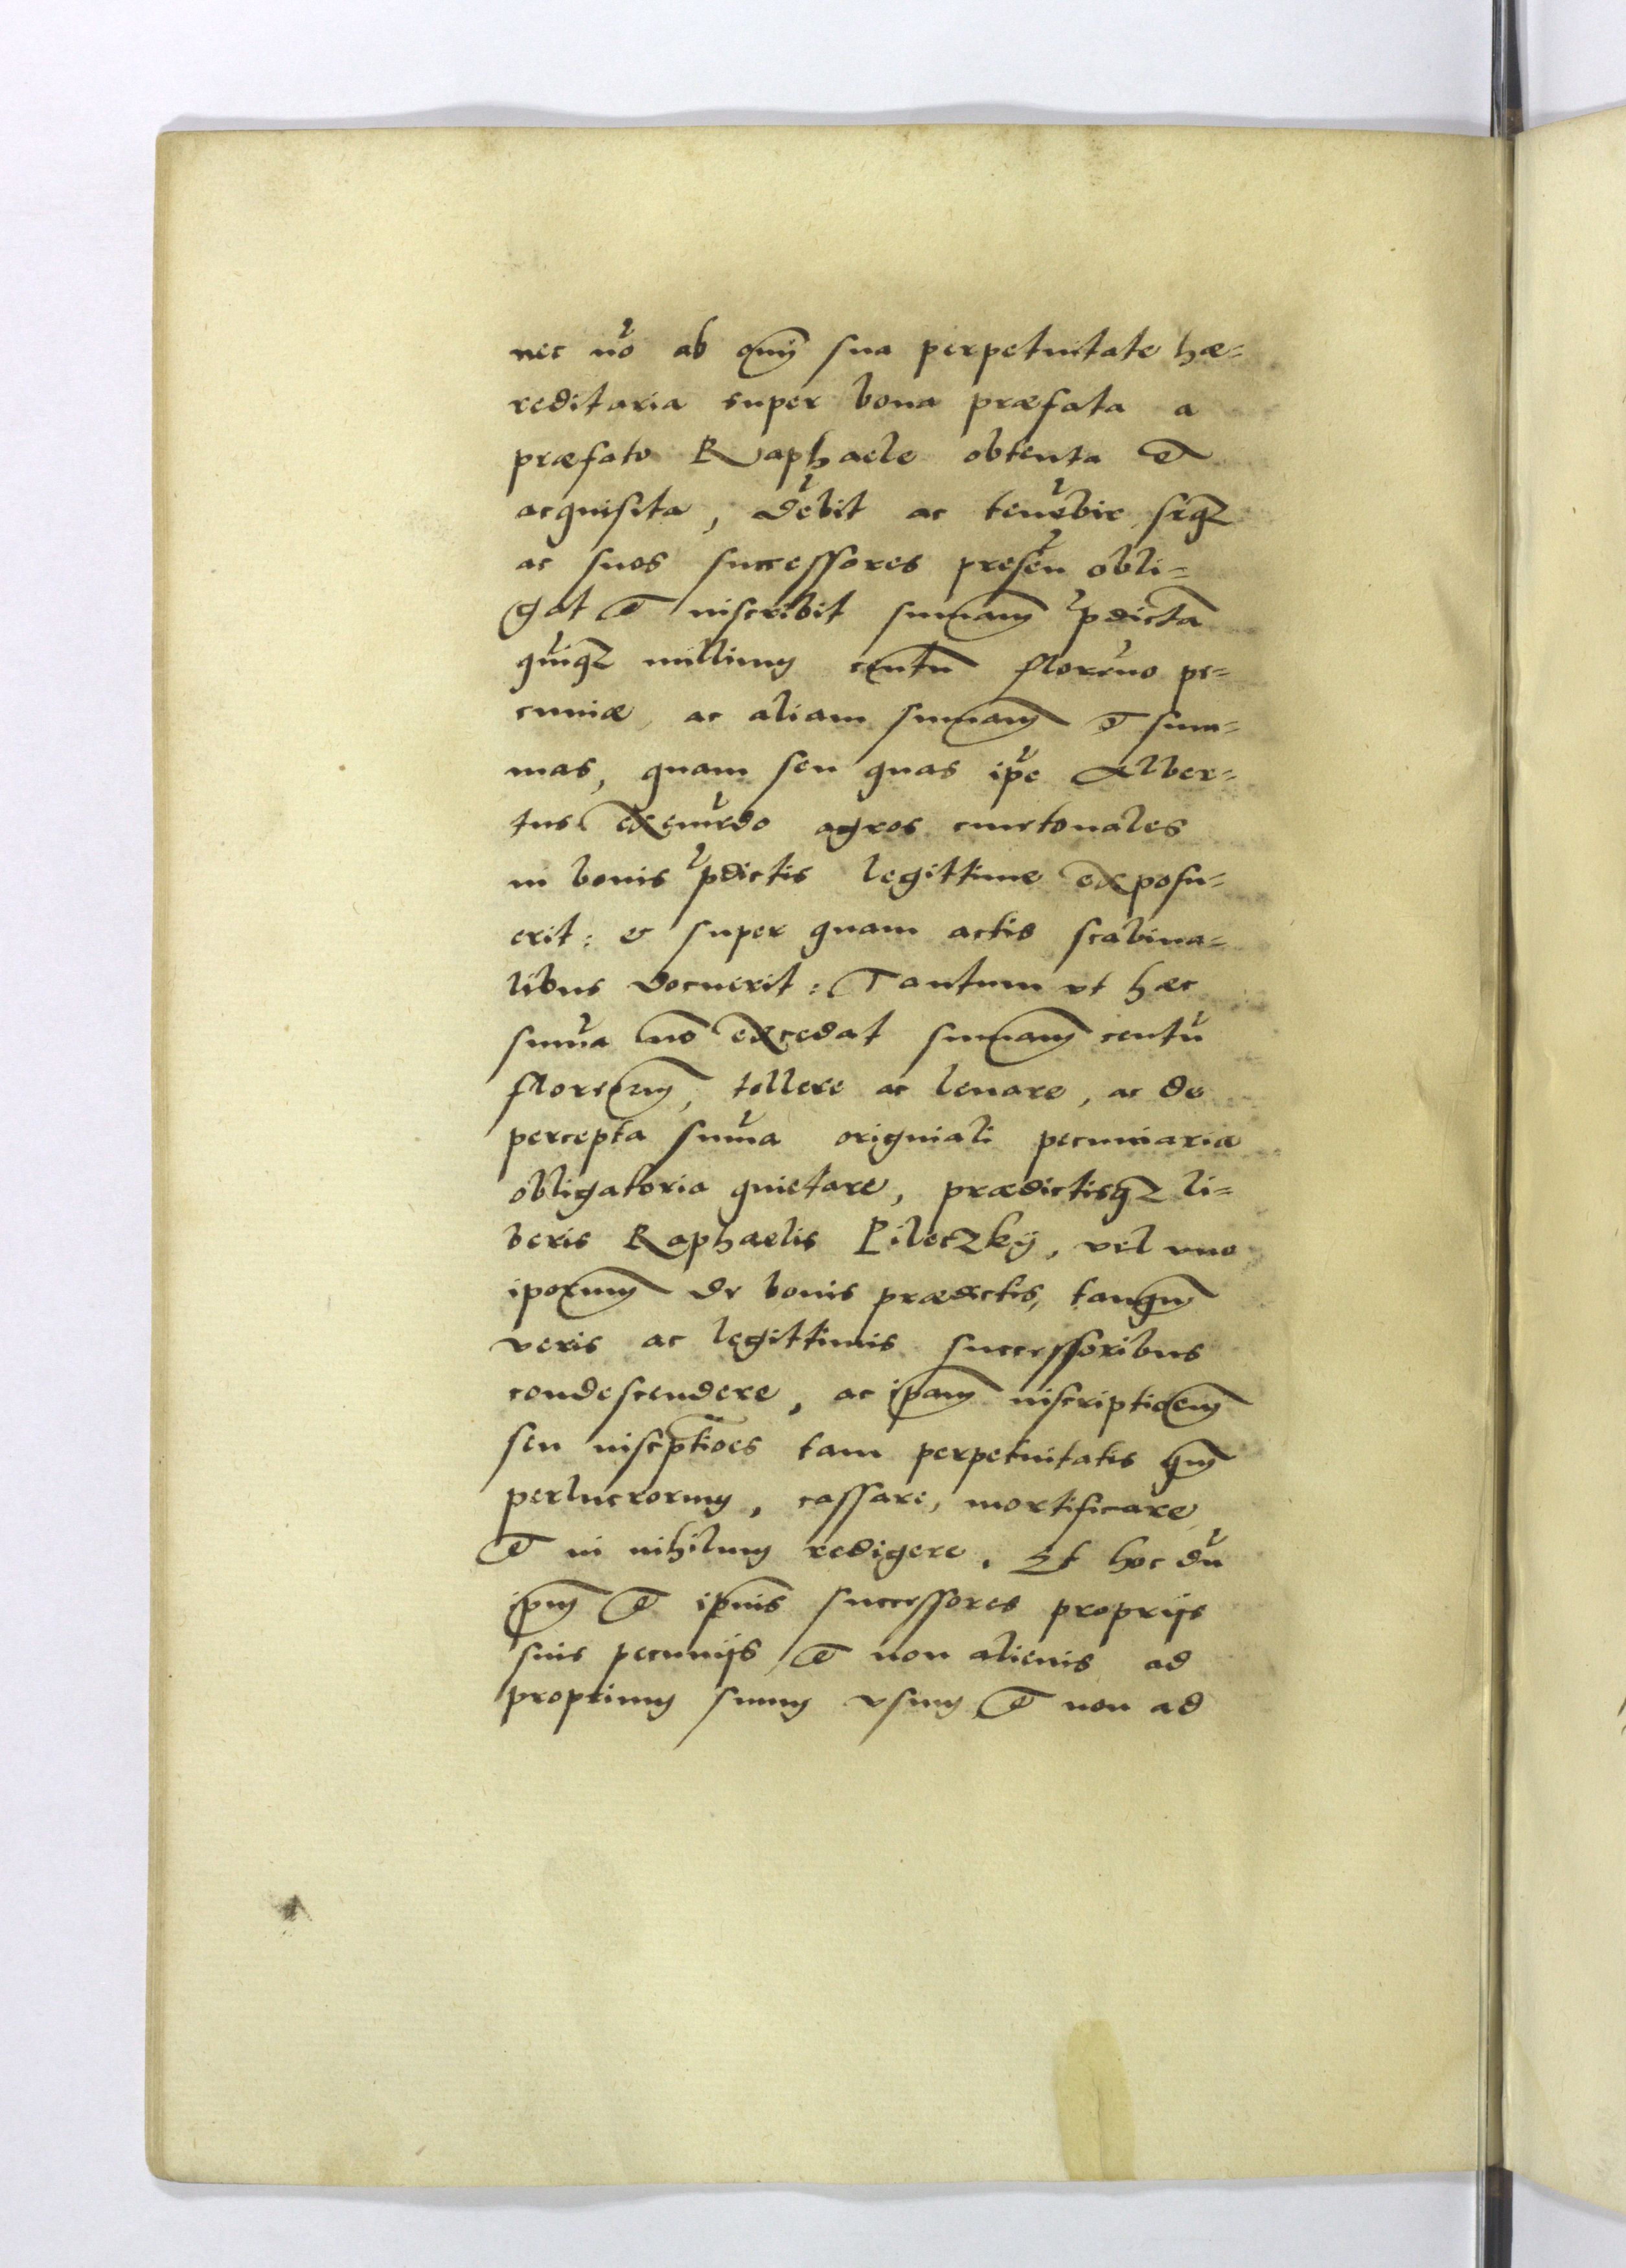 nec nō ab omī sua perpetuitate hæ=
reditaria super bona præfata a
præfato Raphaele obtenta et
acquisita, debīt ac tenēbir seqꝫ
ac suos successores presēn obli=
gat et inscribit summam pdictā
quīqꝫ millium centū florēno pe=
cuniæ, ac aliam summam et sum=
mas, quam seu quas ipē Alber=
tus exemēdo agros cmetonales
in bonis pdictis legittime exposu=
erit: & super quam actis scabina=
libus docuerit: Tantum vt hæc
sum̄a nō excedat summam centū
florenorum, tollere ac leuare, ac de
percepta sum̄a originali pecuniaria
obligatoria quietare, prædictisqꝫ li=
beris Raphaelis Pileczkÿ, vel vno
iporum de bonis prædictis, tanqm̄
veris ac legittimis successoribus
condescendere, ac ipam inscriptioem
seu inscptioes tam perpetuitatis qm̄
perlucrorum, cassare, mortificare
et in nihilum redigere. Et hoc dū
ipm̄ et ipius successores proprijs
suis pecunijs, et non alienis ad
proprium suum vsum et non ad